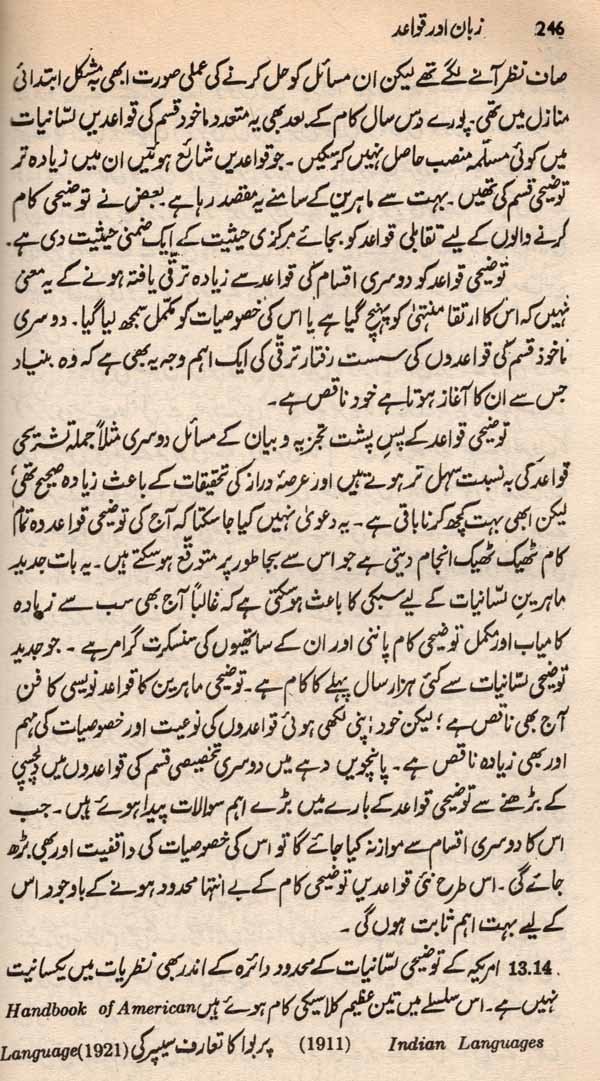 246 زبان اور قواعد
صاف نظر آنے لگے تھے لیکن ان مسائل کو حل کرنے کی عملی صورت ابھی بہ مشکل ابتدائی
منازل میں تھی۔ پورے دس سال کام کے بعد بھی یہ متعدد ماخوذ قسم کی قواعدیں لسانیات
میں کوئی مسلّمہ منصب حاصل نہیں کر سکیں۔ جو قواعدیں شائع ہوئیں ان میں زیادہ تر
توضیحی قسم کی تھیں۔ بہت سے ماہرین کے سامنے یہ مقصد رہا ہے۔ بعض نے توضیحی کام
کرنے والوں کے لیے تقابلی قواعد کو بجائے مرکزی حیثیت کے ایک ضمنی حیثیت دی ہے۔
توضیحی قواعد کو دوسری اقسام کی قواعد سے زیادہ ترقی یافتہ ہونے کے یہ معنی
نہیں کہ اس کا ارتقا منتہیٰ کو پہنچ گیا ہے یا اس کی خصوصیات کو مکمل سمجھ لیا گیا۔ دوسری
ماخوذ قسم کی قواعدوں کی سست رفتار ترقی کی ایک اہم وجہ یہ بھی ہے کہ وہ بنیاد
جس سے ان کا آغاز ہوتا ہے خود ناقص ہے۔
توضیحی قواعد کے پس پشت تجزیہ و بیان کے مسائل دوسری مثلاً جملہ تشریحی
قواعد کی بہ نسبت سہل تر ہوتے ہیں اور عرصۂ دراز کی تحقیقات کے باعث زیادہ صحیح تھی،
لیکن ابھی بہت کچھ کرنا باقی ہے۔ یہ دعویٰ نہیں کیا جا سکتا کہ آج کی توضیحی قواعد وہ تمام
کام ٹھیک ٹھیک انجام دیتی ہے جو اس سے بجا طور پر متوقع ہو سکتے ہیں۔ یہ بات جدید
ماہرین لسانیات کے لیے سبکی کا باعث ہو سکتی ہے کہ غالباً آج بھی سب سے زیادہ
کامیاب اور مکمل توضیحی کام پاننی اور ان کے ساتھیوں کی سنسکرت گرامر ہے۔ جو جدید
توضیحی لسانیات سے کئی ہزار سال پہلے کا کام ہے۔ توضیحی ماہرین کا قواعد نویسی کا فن
آج بھی ناقص ہے؛ لیکن خود اپنی لکھی ہوئی قواعدوں کی نوعیت اور خصوصیات کی فہم
اور بھی زیادہ ناقص ہے۔ پانچویں دہے میں دوسری تخصیصی قسم کی قواعدوں میں دلچسپی
کے بڑھنے سے توضیحی قواعد کے بارے میں بڑے اہم سوالات پیدا ہوئے ہیں۔ جب
اس کا دوسری اقسام سے موازنہ کیا جائے گا تو اس کی خصوصیات کی واقفیت اور بھی بڑھ
جائے گی۔ اس طرح نئی قواعدیں توضیحی کام کے بے انتہا محدود ہونے کے باوجود اس
کے لیے بہت اہم ثابت ہوں گی۔
13.14. امریکہ کے توضیحی لسانیات کے محدود دائرہ کے اندر بھی نظریات میں یکسانیت
نہیں ہے۔ اس سلسلے میں تین عظیم کلاسیکی کام ہوئے ہیں Handbook of American
Indian Languages (1911) پر بوا کا تعارف سیپر کی Language(1921)